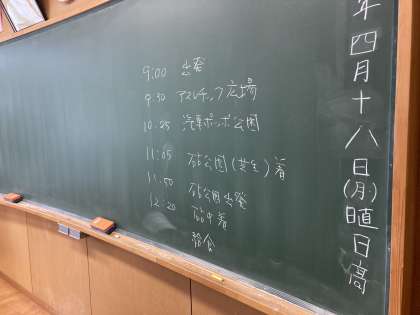 年四月十八日(月)
日高
9:00 出発
9:30 アスレチック広場
10:25 汽車ポッポ公園
11:05 石山公園(芝生)着
11:50 石山公園出発
12:20 石山中着
給食